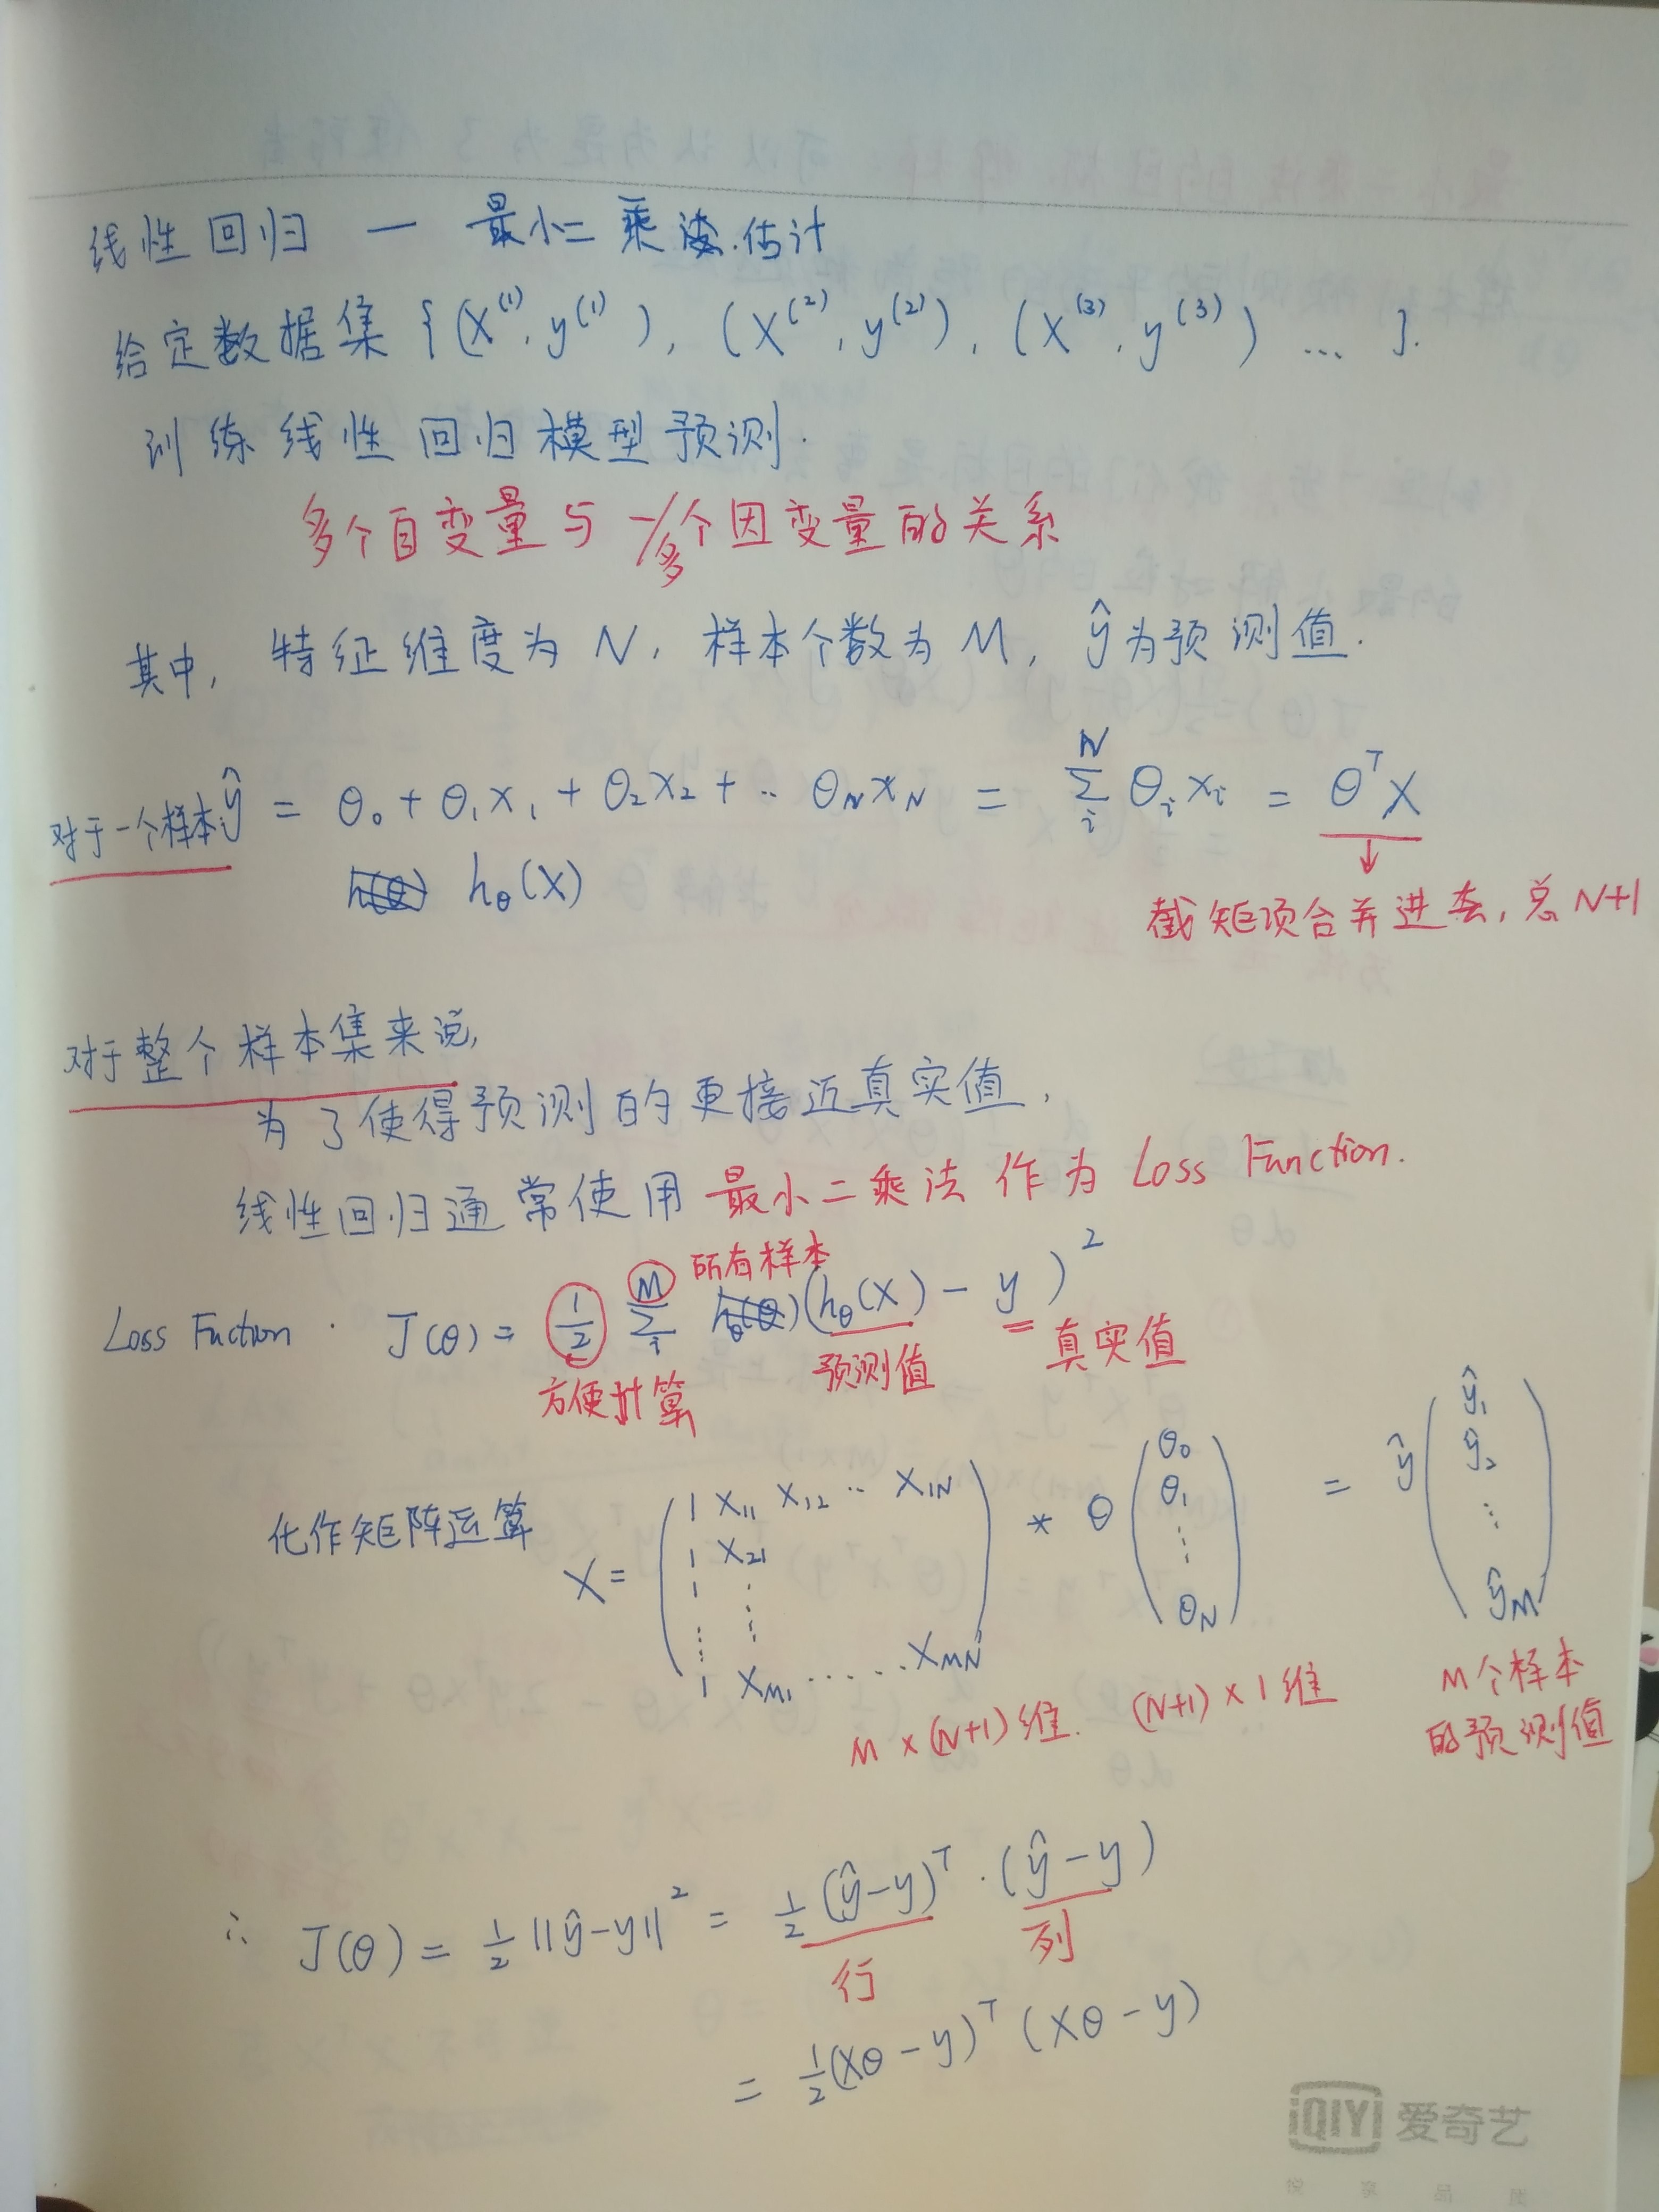 线性回归 — 最小二乘法.估计
给定数据集 {(X⁽¹⁾, y⁽¹⁾), (X⁽²⁾, y⁽²⁾), (X⁽³⁾, y⁽³⁾) ... }.
训练线性回归模型预测.
多个自变量与一/多个因变量的关系
其中, 特征维度为 N, 样本个数为 M, ŷ为预测值.
对于一个样本, ŷ = θ₀ + θ₁x₁ + θ₂x₂ + ·· θ_N x_N = Σ_i^N θᵢxᵢ = θᵀX
h_θ(X)
↓
截矩项合并进去, 总 N+1
对于整个样本集来说,
为了使得预测的更接近真实值,
线性回归通常使用 最小二乘法 作为 Loss Function.
所有样本
Loss Fuction · J(θ) = 1/2 Σ_i^M (h_θ(X) - y)²
方便计算 预测值 真实值
化作矩阵运算
X = ( 1 X₁₁ X₁₂ ·· X₁N
1 X₂₁
1 ⋮
⋮ ⋮
1 X_M1 ...... X_MN ) * θ ( θ₀ θ₁ ⋮ θ_N ) = ŷ ( ŷ₁ ŷ₂ ⋮ ŷ_M )
M × (N+1) 维. (N+1) × 1 维 M个样本
的预测值
∴ J(θ) = 1/2 ||ŷ-y||² = 1/2 (ŷ-y)ᵀ · (ŷ-y)
行 列
= 1/2 (Xθ - y)ᵀ (Xθ - y)
iQIYI 爱奇艺